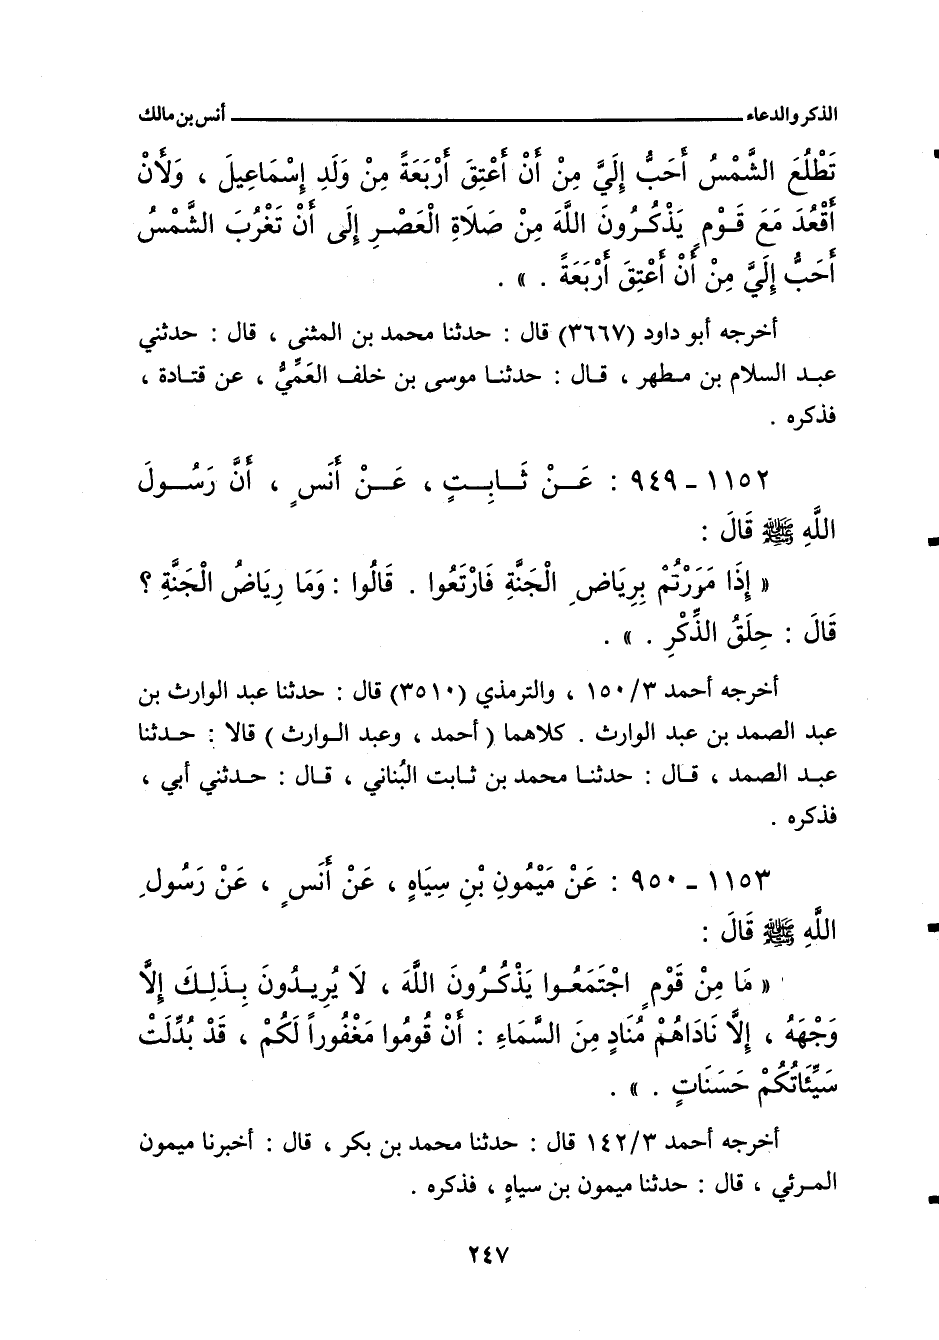 الذكر والدعاء ــــــــــ أنس بن مالك
تَطْلُعَ الشَّمْسُ أَحَبُّ إِلَيَّ مِنْ أَنْ أَعْتِقَ أَرْبَعَةً مِنْ وَلَدِ إِسْمَاعِيلَ ، وَلَأَنْ
أَقْعُدَ مَعَ قَوْمٍ يَذْكُرُونَ اللَّهَ مِنْ صَلَاةِ الْعَصْرِ إِلَى أَنْ تَغْرُبَ الشَّمْسُ
أَحَبُّ إِلَيَّ مِنْ أَنْ أَعْتِقَ أَرْبَعَةً . » .
أخرجه أبو داود (٣٦٦٧) قال : حدثنا محمد بن المثنى ، قال : حدثني
عبد السلام بن مطهر ، قال : حدثنا موسى بن خلف العَمِّيُّ ، عن قتادة ،
فذكره .
١١٥٢ - ٩٤٩ : عَنْ ثَابِتٍ ، عَنْ أَنَسٍ ، أَنَّ رَسُولَ
اللَّهِ ﷺ قَالَ :
« إِذَا مَرَرْتُمْ بِرِيَاضِ الْجَنَّةِ فَارْتَعُوا . قَالُوا : وَمَا رِيَاضُ الْجَنَّةِ ؟
قَالَ : حِلَقُ الذِّكْرِ . » .
أخرجه أحمد ١٥٠/٣ ، والترمذي (٣٥١٠) قال : حدثنا عبد الوارث بن
عبد الصمد بن عبد الوارث . كلاهما ( أحمد ، وعبد الوارث ) قالا : حدثنا
عبد الصمد ، قال : حدثنا محمد بن ثابت البُناني ، قال : حدثني أبي ،
فذكره .
١١٥٣ - ٩٥٠ : عَنْ مَيْمُونِ بْنِ سِيَاهٍ ، عَنْ أَنَسٍ ، عَنْ رَسُولِ
اللَّهِ ﷺ قَالَ :
« مَا مِنْ قَوْمٍ اجْتَمَعُوا يَذْكُرُونَ اللَّهَ ، لَا يُرِيدُونَ بِذَلِكَ إِلَّا
وَجْهَهُ ، إِلَّا نَادَاهُمْ مُنَادٍ مِنَ السَّمَاءِ : أَنْ قُومُوا مَغْفُوراً لَكُمْ ، قَدْ بُدِّلَتْ
سَيِّئَاتُكُمْ حَسَنَاتٍ . » .
أخرجه أحمد ١٤٢/٣ قال : حدثنا محمد بن بكر ، قال : أخبرنا ميمون
المرئي ، قال : حدثنا ميمون بن سياهٍ ، فذكره .
٢٤٧